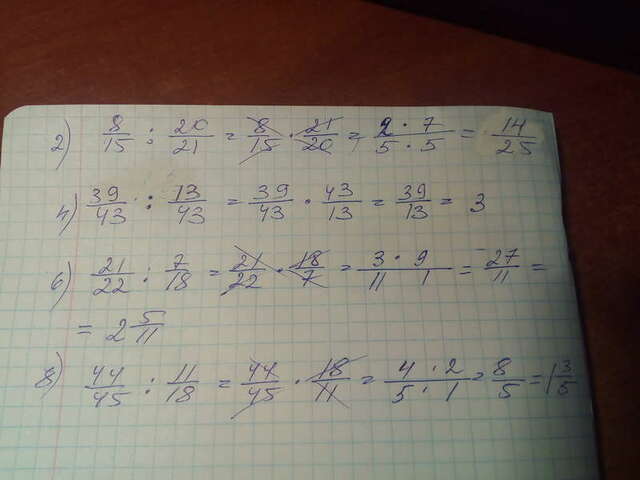 2) 8/15 : 20/21 = 8/15 · 21/20 = 2 · 7 / 5 · 5 = 14/25
4) 39/43 : 13/43 = 39/43 · 43/13 = 39/13 = 3
6) 21/22 : 7/18 = 21/22 · 18/7 = 3 · 9 / 11 1 = 27/11 =
= 2 5/11
8) 44/45 : 11/18 = 44/45 · 18/11 = 4 · 2 / 5 · 1 = 8/5 = 1 3/5